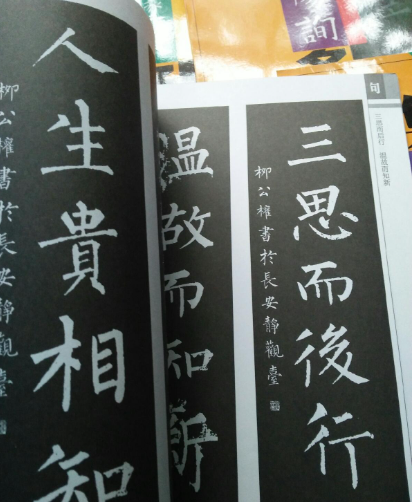 詢
句
三思而后行 温故而知新
三思而後行
柳公權書於長安靜觀臺
温故而知新
人生貴相知
柳公權書於長安靜觀臺